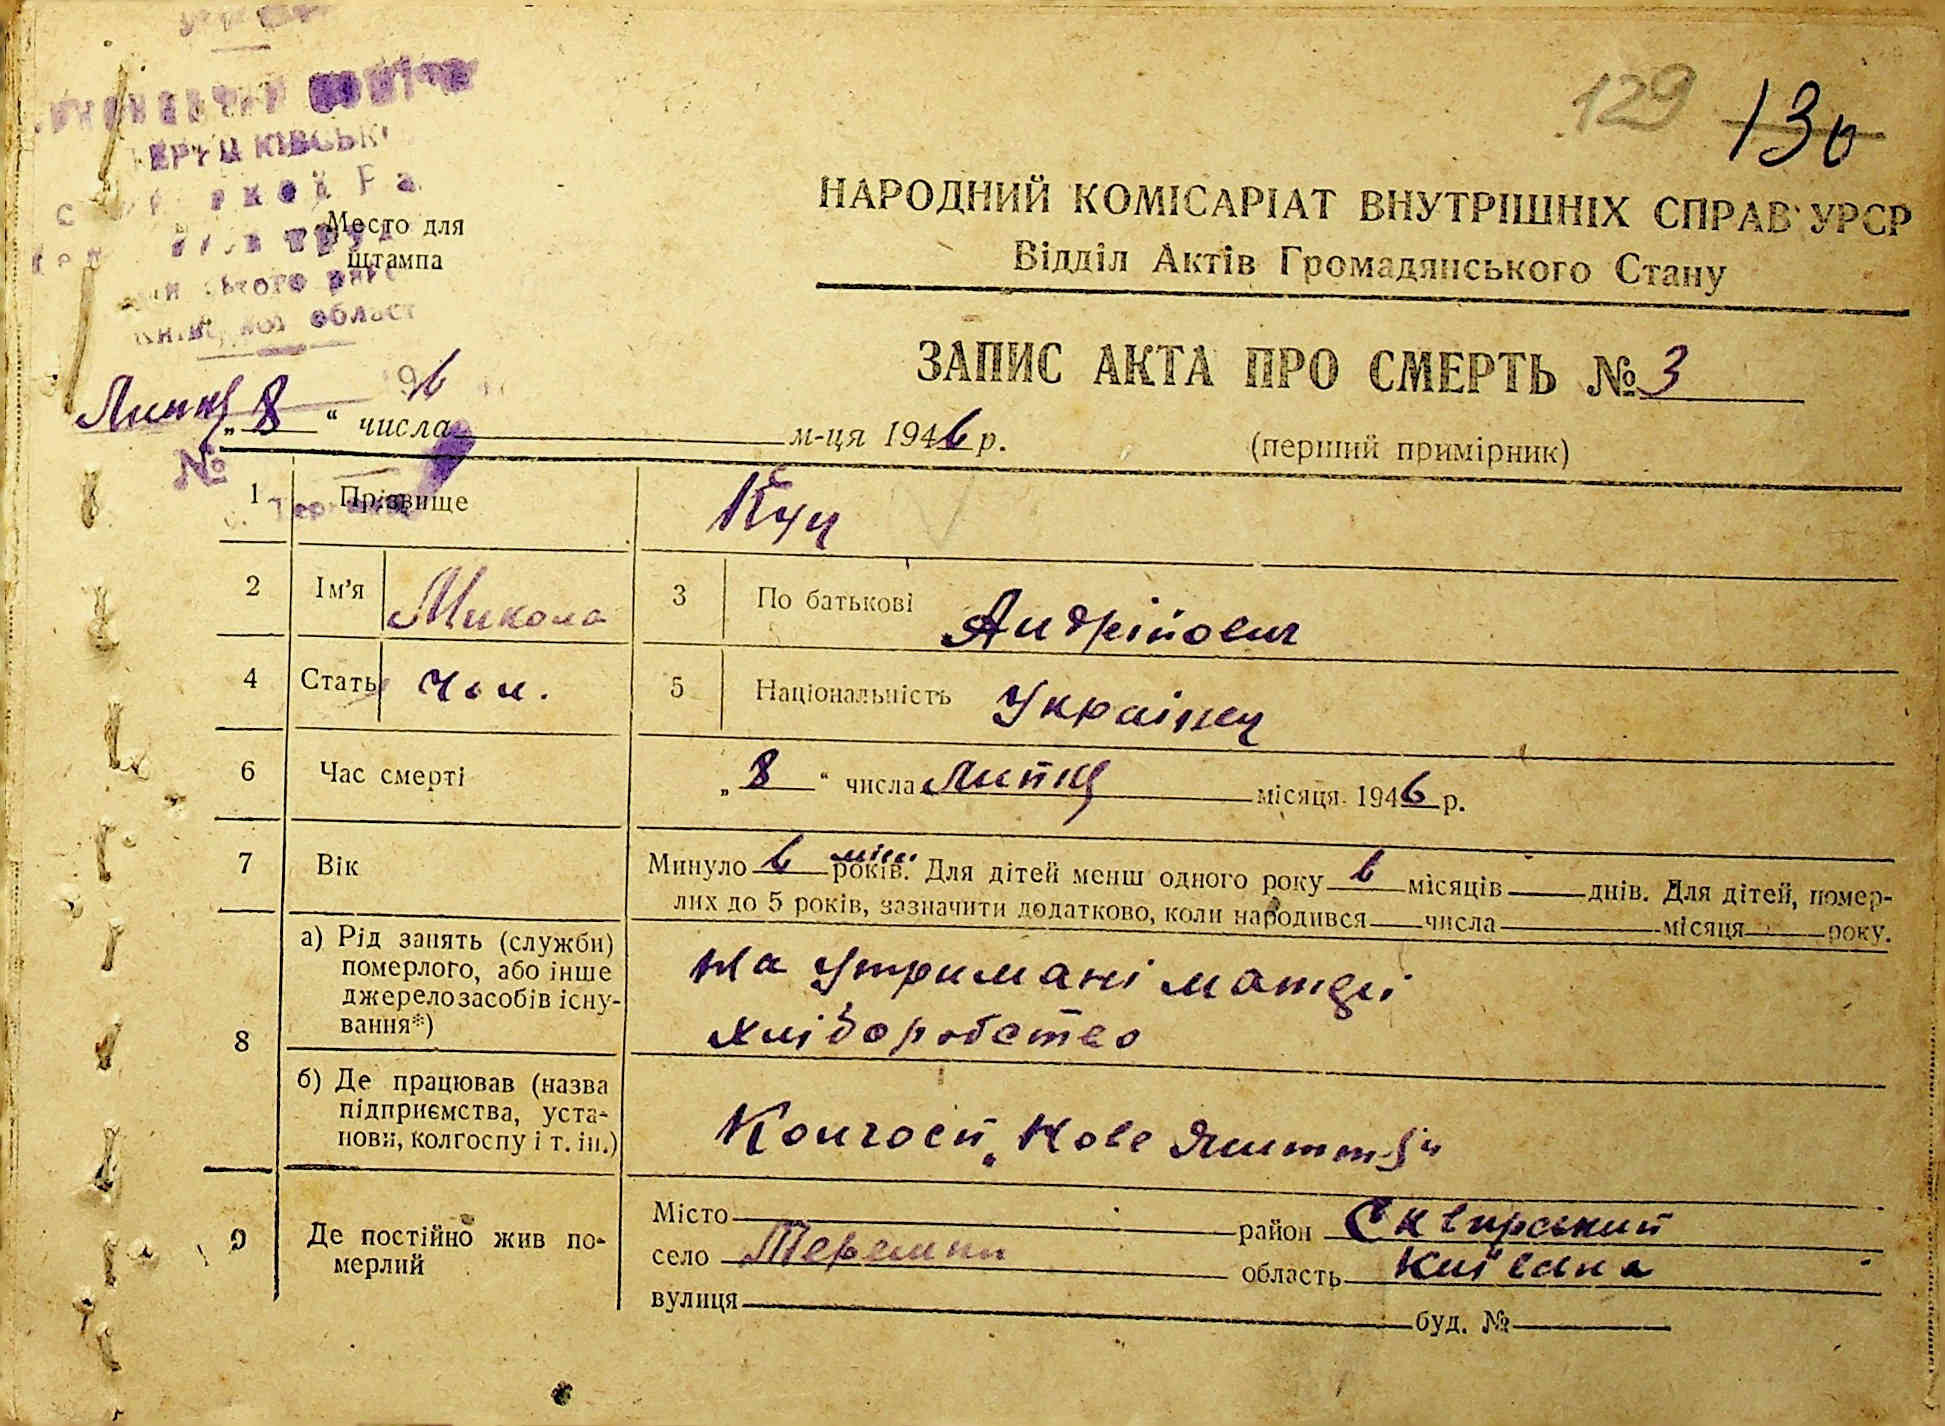 129 130
Место для
штампа
області
НАРОДНИЙ КОМІСАРІАТ ВНУТРІШНІХ СПРАВ УРСР
Відділ Актів Громадянського Стану
ЗАПИС АКТА ПРО СМЕРТЬ № 3
Липня „8“ числа м-ця 1946 р.
(перший примірник)
№
1 Прізвище Куц
2 Ім'я Микола 3 По батькові Андрійович
4 Стать чол. 5 Національність Українец
6 Час смерті „8“ числа Липня місяця 1946 р.
7 Вік Минуло 6 міс. років. Для дітей менш одного року 6 місяців днів. Для дітей, помер-
лих до 5 років, зазначити додатково, коли народився числа місяця року.
8 а) Рід занять (служби)
померлого, або інше
джерело засобів існу-
вання*)
На утримані матері
хліборобство
б) Де працював (назва
підприємства, уста-
нови, колгоспу і т. ін.)
Колгосп „Нове Життя"
9 Де постійно жив по-
мерлий
Місто район Сквирський
село Терешки область Київська
вулиця буд. №